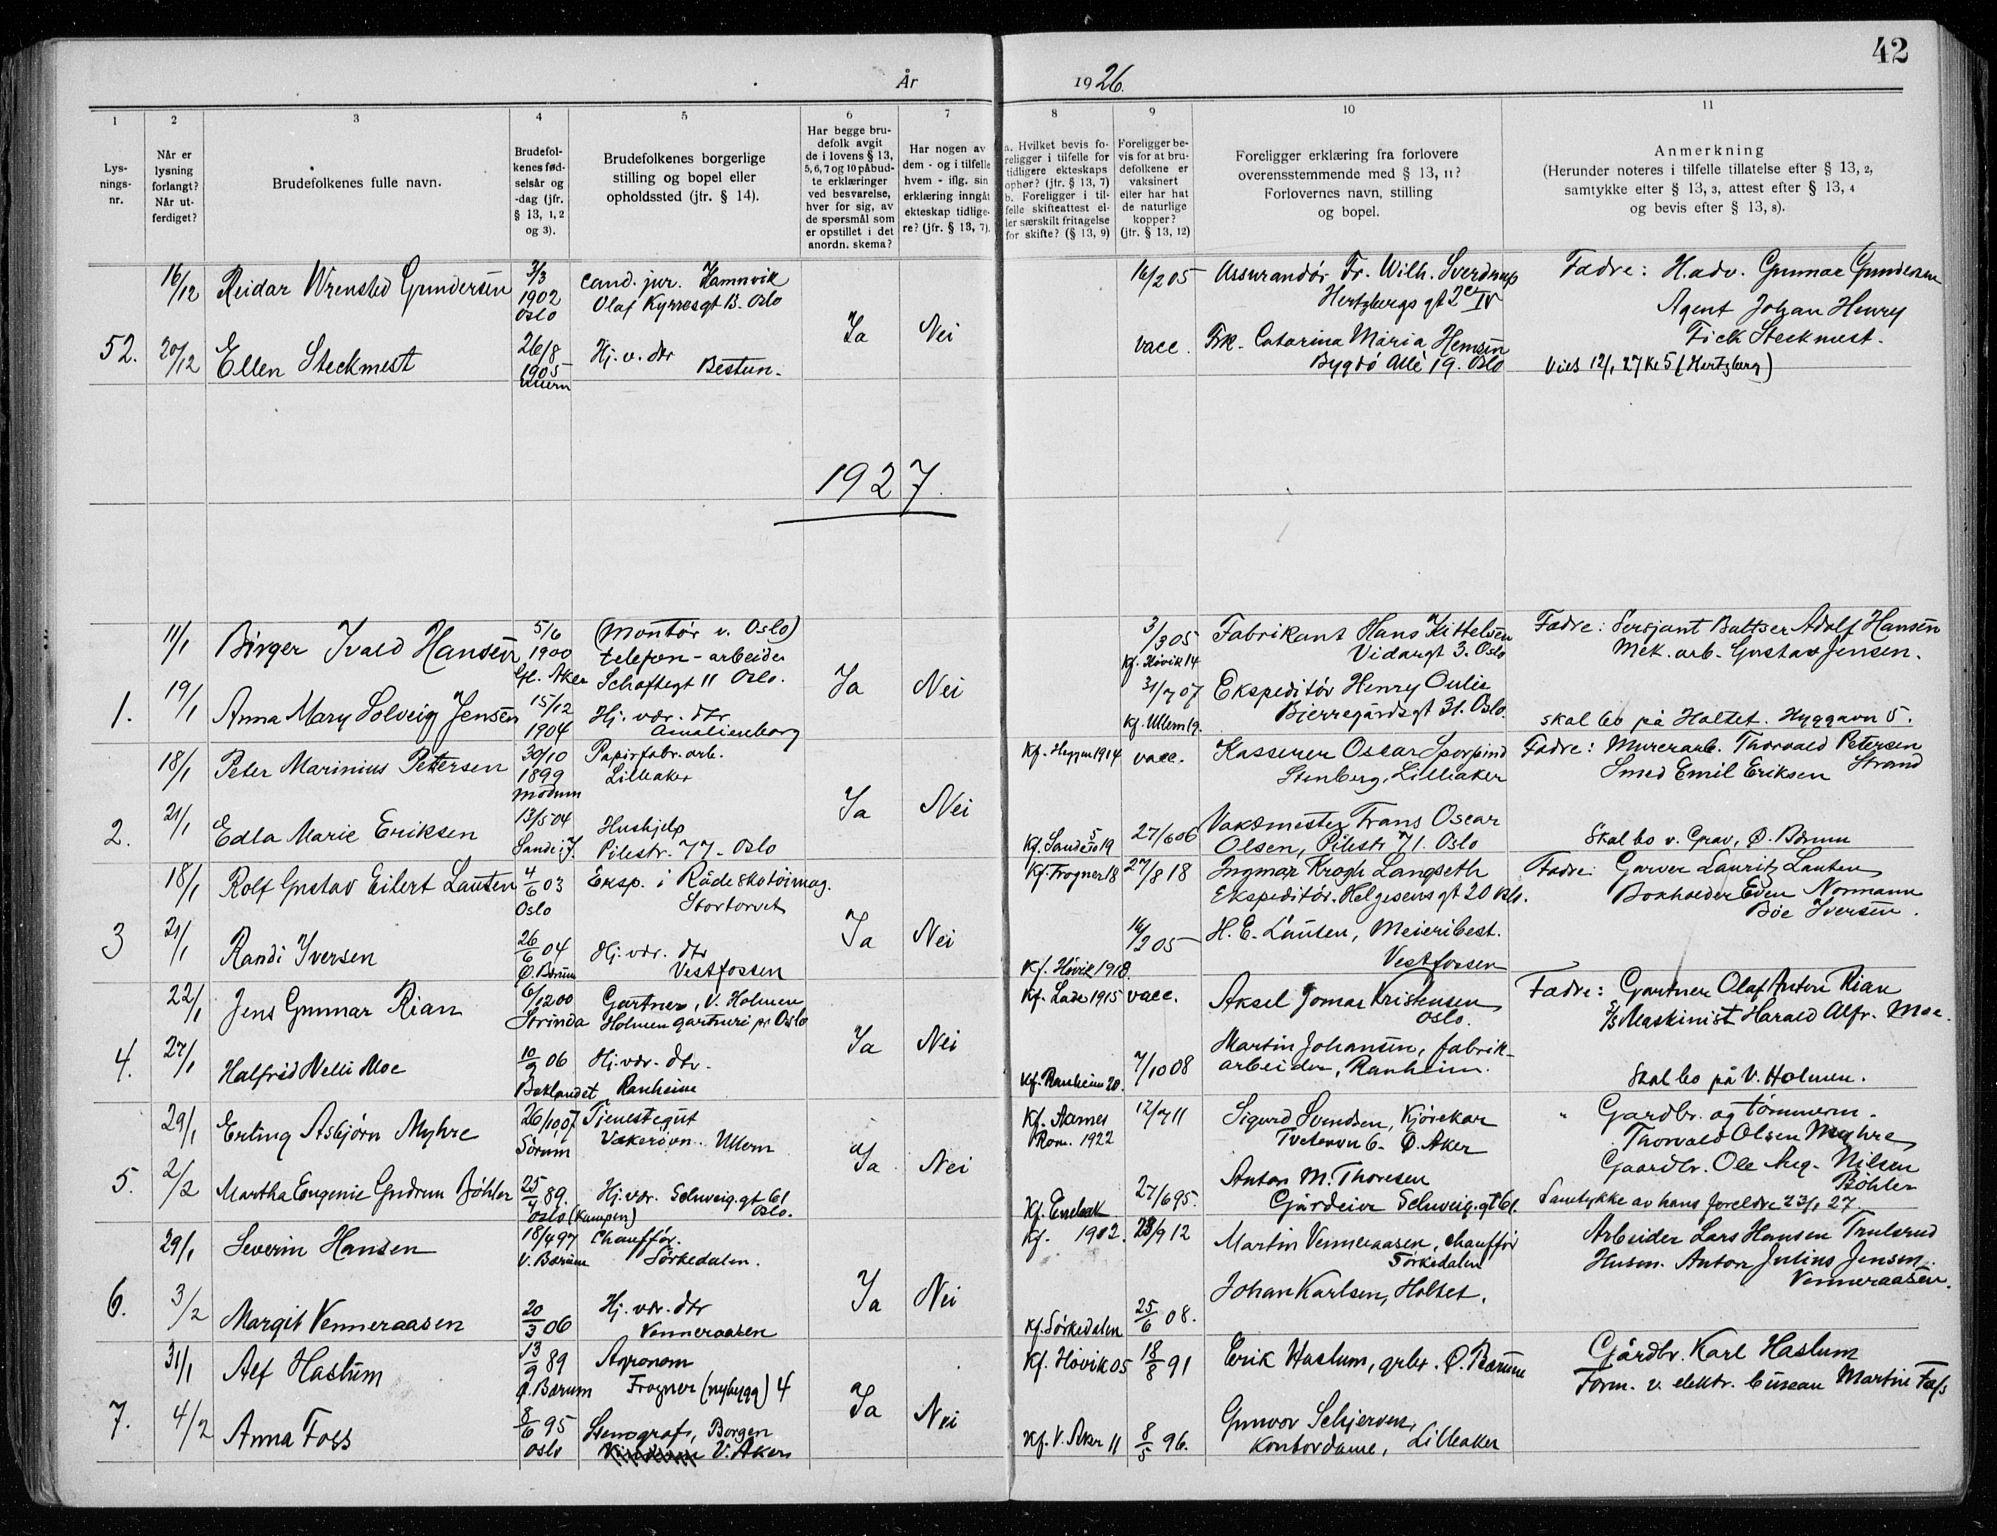 42
År 1926.
1 2 3 4 5 6 7 8 9 10 11
Lys-
nings-
nr.
Når er
lysning
forlangt?
Når ut-
ferdiget?
Brudefolkenes fulle navn.
Brudefol-
kenes fød-
selsår og
-dag (jfr.
§ 13, 1, 2
og 3).
Brudefolkenes borgerlige
stilling og bopel eller
opholdssted (jfr. § 14).
Har begge bru-
defolk avgit
de i lovens § 13,
5, 6, 7 og 10 påbud-
te erklæringer
ved besvarelse,
hver for sig, av
de spørsmål som
er opstillet i det
anordn. skema?
Har nogen av
dem - og i tilfelle
hvem - iflg. sin
erklæring inngåt
ekteskap tidlige-
re? (jfr. § 13, 7).
a. Hvilket bevis fo-
religger i tilfelle for
tidligere ekteskaps
ophør? (jfr. § 13, 7)
b. Foreligger i til-
felle skifteattest el-
ler særskilt fritagelse
for skifte? (§ 13, 9)
Foreligger be-
vis for at bru-
defolkene er
vaksinert
eller har hat
de naturlige
kopper?
(jfr. § 13, 12)
Foreligger erklæring fra forlovere
overensstemmende med § 13, 11?
Forlovernes navn, stilling
og bopel.
Anmerkning
(Herunder noteres i tilfelle tillatelse efter § 13, 2,
samtykke efter § 13, 3, attest efter § 13, 4
og bevis efter § 13, 8).
16/12 Reidar Wrensted Gundersen 3/3 1902 Oslo
cand. jur. Hamnvik
Olaf Kyrresgt B. Oslo
16/2 05 Assurandør Fr. Wilh. Sverdrup
Hertzbergs gt 2c IV
Fædre: H.adv. Gunnar Gundersen
Agent Johan Henry
Fick Steckmest.
52. 20/12 Ellen Steckmest 26/8 1905 Ullern
Hj. v. dtr
Bestun.
Ja Nei
vacc. Frk. Catarina Maria Hemsen
Bygdö Allé 19. Oslo
Vied 12/1 27 Kl 5 (Hertzberg)
1927.
11/1 Birger Ivald Hansen 5/6 1900 Gl. Aker
(Montör v. Oslo)
telefon-arbeider
Schaftegt 11 Oslo.
3/3 05
Kf. Hövik 14
Fabrikant Hans Kittelsen
Vidargt 3. Oslo
Fædre: Sersjant Baltser Adolf Hansen
Mek. arb. Gustav Jensen.
1. 19/1 Anna Mary Solveig Jensen 15/12 1904
Hj. vær. dtr
Amalienborg
Ja Nei
31/7 07
Kf. Ullern 19.
Ekspeditör Henry Oulie
Bjerregårdsgt 31. Oslo.
skal bo på Holtet. Hyggavn 5.
18/1 Peter Marinius Pettersen 30/10 1899 Modum
Papirfabr. arb.
Lilleaker
Kf. Heggen 1914 vacc.
Kasserer Oscar Sporpind
Stenberg, Lilleaker
Fædre: Murerarb. Thorvald Petersen
Strand
Smed Emil Eriksen
2. 21/1 Edla Marie Eriksen 13/5 04 Sande i J.
Hushjelp
Pilestr. 77 - Oslo
Ja Nei
Kf. Sande 19 27/6 06
Vaktmester Frans Oscar
Olsen, Pilestr 71. Oslo
Skal bo v. Grav, Ö. Bærum
18/1 Rolf Gustav Eilert Lauten 4/6 03 Oslo
Eksp. i Råde skotöimag.
Stortorvet
Kf. Frogner 18 27/8 18
Ingmar Krogh Langseth
Ekspeditör. Helgesens gt 20 Oslo.
Fædre: Garver Lauritz Lauten
Bokholder Even Normann
Böe Iversen.
3 21/1 Randi Iversen 26/6 04 Ö. Bærum
Hj. vær. dtr
Vestfossen
Ja Nei
Kf. Hövik 1918. 16/2 05
H. E. Lauten, Meieribest.
Vestfossen
22/1 Jens Gunnar Rian 6/12 00 Strinda
Gartner, V. Holmen
Holmen gartneri pr Oslo
Kf. Lade 1915 vacc.
Aksel Jomar Kristensen
Oslo.
Fædre: Gartner Olaf Anton Rian
Maskinist Harald Alfr. Moe.
4. 27/1 Halfrid Nelli Moe 10/2 06 Baklandet
Hj. vær. dtr.
Ranheim
Ja Nei
Kf. Ranheim 20. 7/10 08
Martin Johansen, fabrik-
arbeider, Ranheim.
Skal bo på V. Holmen.
29/1 Erling Asbjörn Myhre 26/10 07 Sörum
Tjenestegut
Vækerövn. Ullern
Kf. Aarnes
Rom. 1922
12/7 11
Sigurd Svendsen, Kjörekar
Tvetenvn 6. Ö. Aker
" Gardbr. og tömmerm.
Thorvald Olsen Myhre
Gaardbr. Ole Aug. Nilsen
Böhler
5. 2/2 Martha Eugenie Gudrun Böhler 25/1 89. Oslo (Kampen)
Hj. vær. Schweig.gt 61
Oslo.
Ja Nei
Kf. Enebak
27/6 95
Anton M. Thoresen
Gårdeier Schweig.gt 61.
Samtykke av hans foreldre 23/1 27.
29/1 Severin Hansen 18/4 97 V. Bærum
Chaufför.
Sörkedalen.
Kf. 1912. 28/9 12
Martin Venneraasen, chaufför
Sörkedalen
Arbeider Lars Hansen Trulsrud
Husm. Anton Julius Jensen
Venneraasen.
6. 3/2 Margit Venneraasen 20/3 06
Hj. vær. dtr
Venneraasen
Ja Nei
Kf. Sörkedalen 25/6 08.
Johan Karlsen, Holtet.
31/1 Alf Haslum 13/9 89 Ö. Bærum
Agronom
Frogner (nybygg) 4
Kf. Hövik 05 18/8 91
Erik Haslum, grbr. Ö. Bærum
Gårdbr. Karl Haslum
Form. v. elektr. bureau Martin Foss
7. 4/2 Anna Foss 8/6 95 Oslo
Stenograf, Borgen
V. Aker
Ja Nei
Kf. V. Aker 11 8/5 96.
Gunvor Schjerven,
Kontordame, Lilleaker